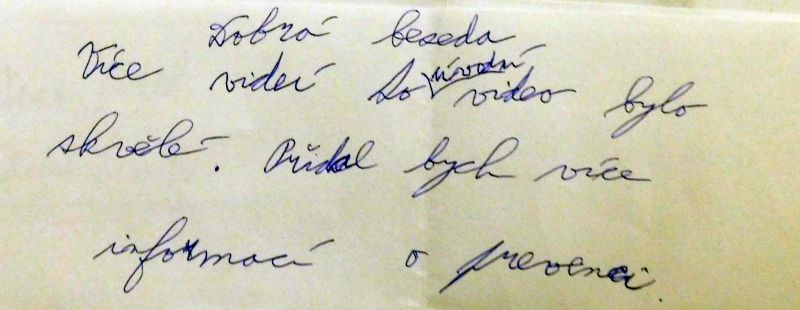 Dobrá beseda
Více videí to úvodní video bylo
skvělé. Přidal bych více
informací o prevenci.